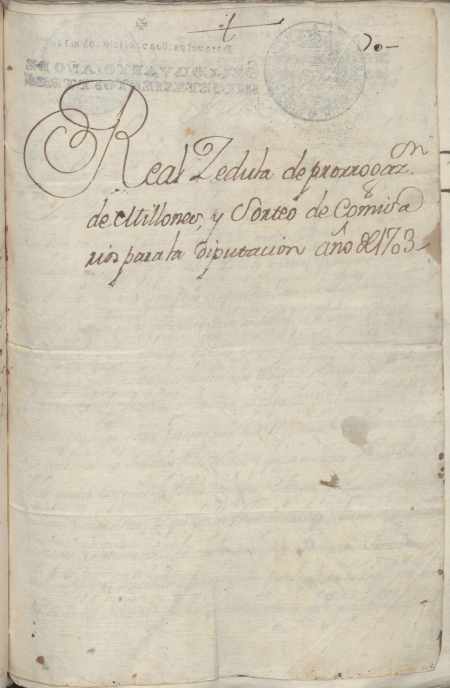 Real Zedula de prorrogaz.on
de Millones, y Sorteo de Comisa
rios para la Diputación año de 1703